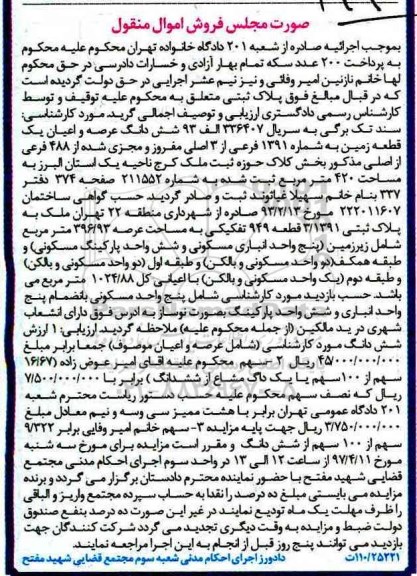 صورت مجلس فروش اموال منقول
بموجب اجرائیه صادره از شعبه ۲۰۱ دادگاه خانواده تهران محکوم علیه محکوم
به پرداخت ۲۰۰ عدد سکه تمام بهار آزادی و خسارات دادرسی در حق محکوم
لها خانم نازنین امیر وفائی و نیز نیم عشر اجرایی در حق دولت گردیده است
که در قبال مبالغ فوق پلاک ثبتی متعلق به محکوم علیه توقیف و توسط
کارشناس رسمی دادگستری ارزیابی و توصیف اجمالی گردید. مورد کارشناسی:
سند تک برگی به سریال ۳۳۶۴۰۷ الف ۹۳ شش دانگ عرصه و اعیان یک
قطعه زمین به شماره ۱۳۹۱ فرعی از ۳ اصلی مفروز و مجزی شده از ۴۸۸ فرعی
از اصلی مذکور بخش کلاک حوزه ثبت ملک کرج ناحیه یک استان البرز به
مساحت ۴۲۰ متر مربع ثبت شده به شماره ۲۱۱۵۵۲ صفحه ۳۷۴ دفتر
۳۳۷ بنام خانم سهیلا ثبت و صادر گردید. حسب گواهی ساختمان
۲۲۲۰۱۱۶۰۷ مورخ ۹۳/۲/۱۳ صادره از شهرداری منطقه ۲۲ تهران ملک به
پلاک ثبتی ۳/۱۳۹۱ قطعه ۹۴۹ تفکیکی به مساحت عرصه ۳۹۶/۹۳ متر مربع
شامل زیرزمین (پنج واحد انباری مسکونی و شش واحد پارکینگ مسکونی) و
طبقه همکف(دو واحد مسکونی و بالکن) و طبقه اول (دو واحد مسکونی و بالکن)
و طبقه دوم (یک واحد مسکونی و بالکن) با اعیانی کل ۱۰۲۴/۸۸ متر مربع می
باشد. حسب بازدید مورد کارشناسی شامل پنج واحد مسکونی بانضمام پنج
واحد انباری و شش واحد پارکینگ بصورت نوساز به ادرس فوق دارای انشعاب
شهری در ید مالکین (از جمله محکوم علیه) ملاحظه گردید. ارزیابی: ۱ ارزش
شش دانگ مورد کارشناسی (شامل عرصه و اعیان موصوف) جمعا برابر مبلغ
۴۵/۰۰۰/۰۰۰/۰۰۰ ریال ۲- سهم محکوم علیه اقای امیز عوض زاده (۱۶/۶۷
سهم از ۱۰۰سهم یا یک دانگ مشاع از ششدانگ ) برابر با ۷/۵۰۰/۰۰۰/۰۰۰
ریال که نصف سهم محکوم علیه حسب دستور ریاست محترم شعبه
۲۰۱ دادگاه عمومی تهران برابر با هشت ممیز سی وسه و نیم معادل مبلغ
۳/۷۵۰/۰۰۰/۰۰۰ ریال جهت پایه مزایده ۳- سهم خانم امیر وفایی برابر ۹/۳۲۲
سهم از ۱۰۰ سهم از شش دانگ و مقرر است مزایده برای مورخ سه شنبه
مورخ ۹۷/۴/۱۱ از ساعت ۱۲ الی ۱۳ در واحد سوم اجرای احکام مدنی مجتمع
قضایی شهید مفتح با حضور نماینده محترم دادستان برگزار می گردد و برنده
مزایده می بایستی مبلغ ده درصد را نقدا به حساب سپرده مجتمع واریز و الباقی
را ظرف مهلت یک ماه تودیع نمایند در غیر این صورت ده درصد بنفع صندوق
دولت ضبط و مزایده به وقت دیگری تجدید می گردد شرکت کنندگان جهت
بازدید می توانند پنج روز قبل از انجام به این اجرا مراجعه نمایند.
۱۱۰/۲۵۲۲۱ت دادورز اجرای احکام مدنی شعبه سوم مجتمع قضایی شهید مفتح